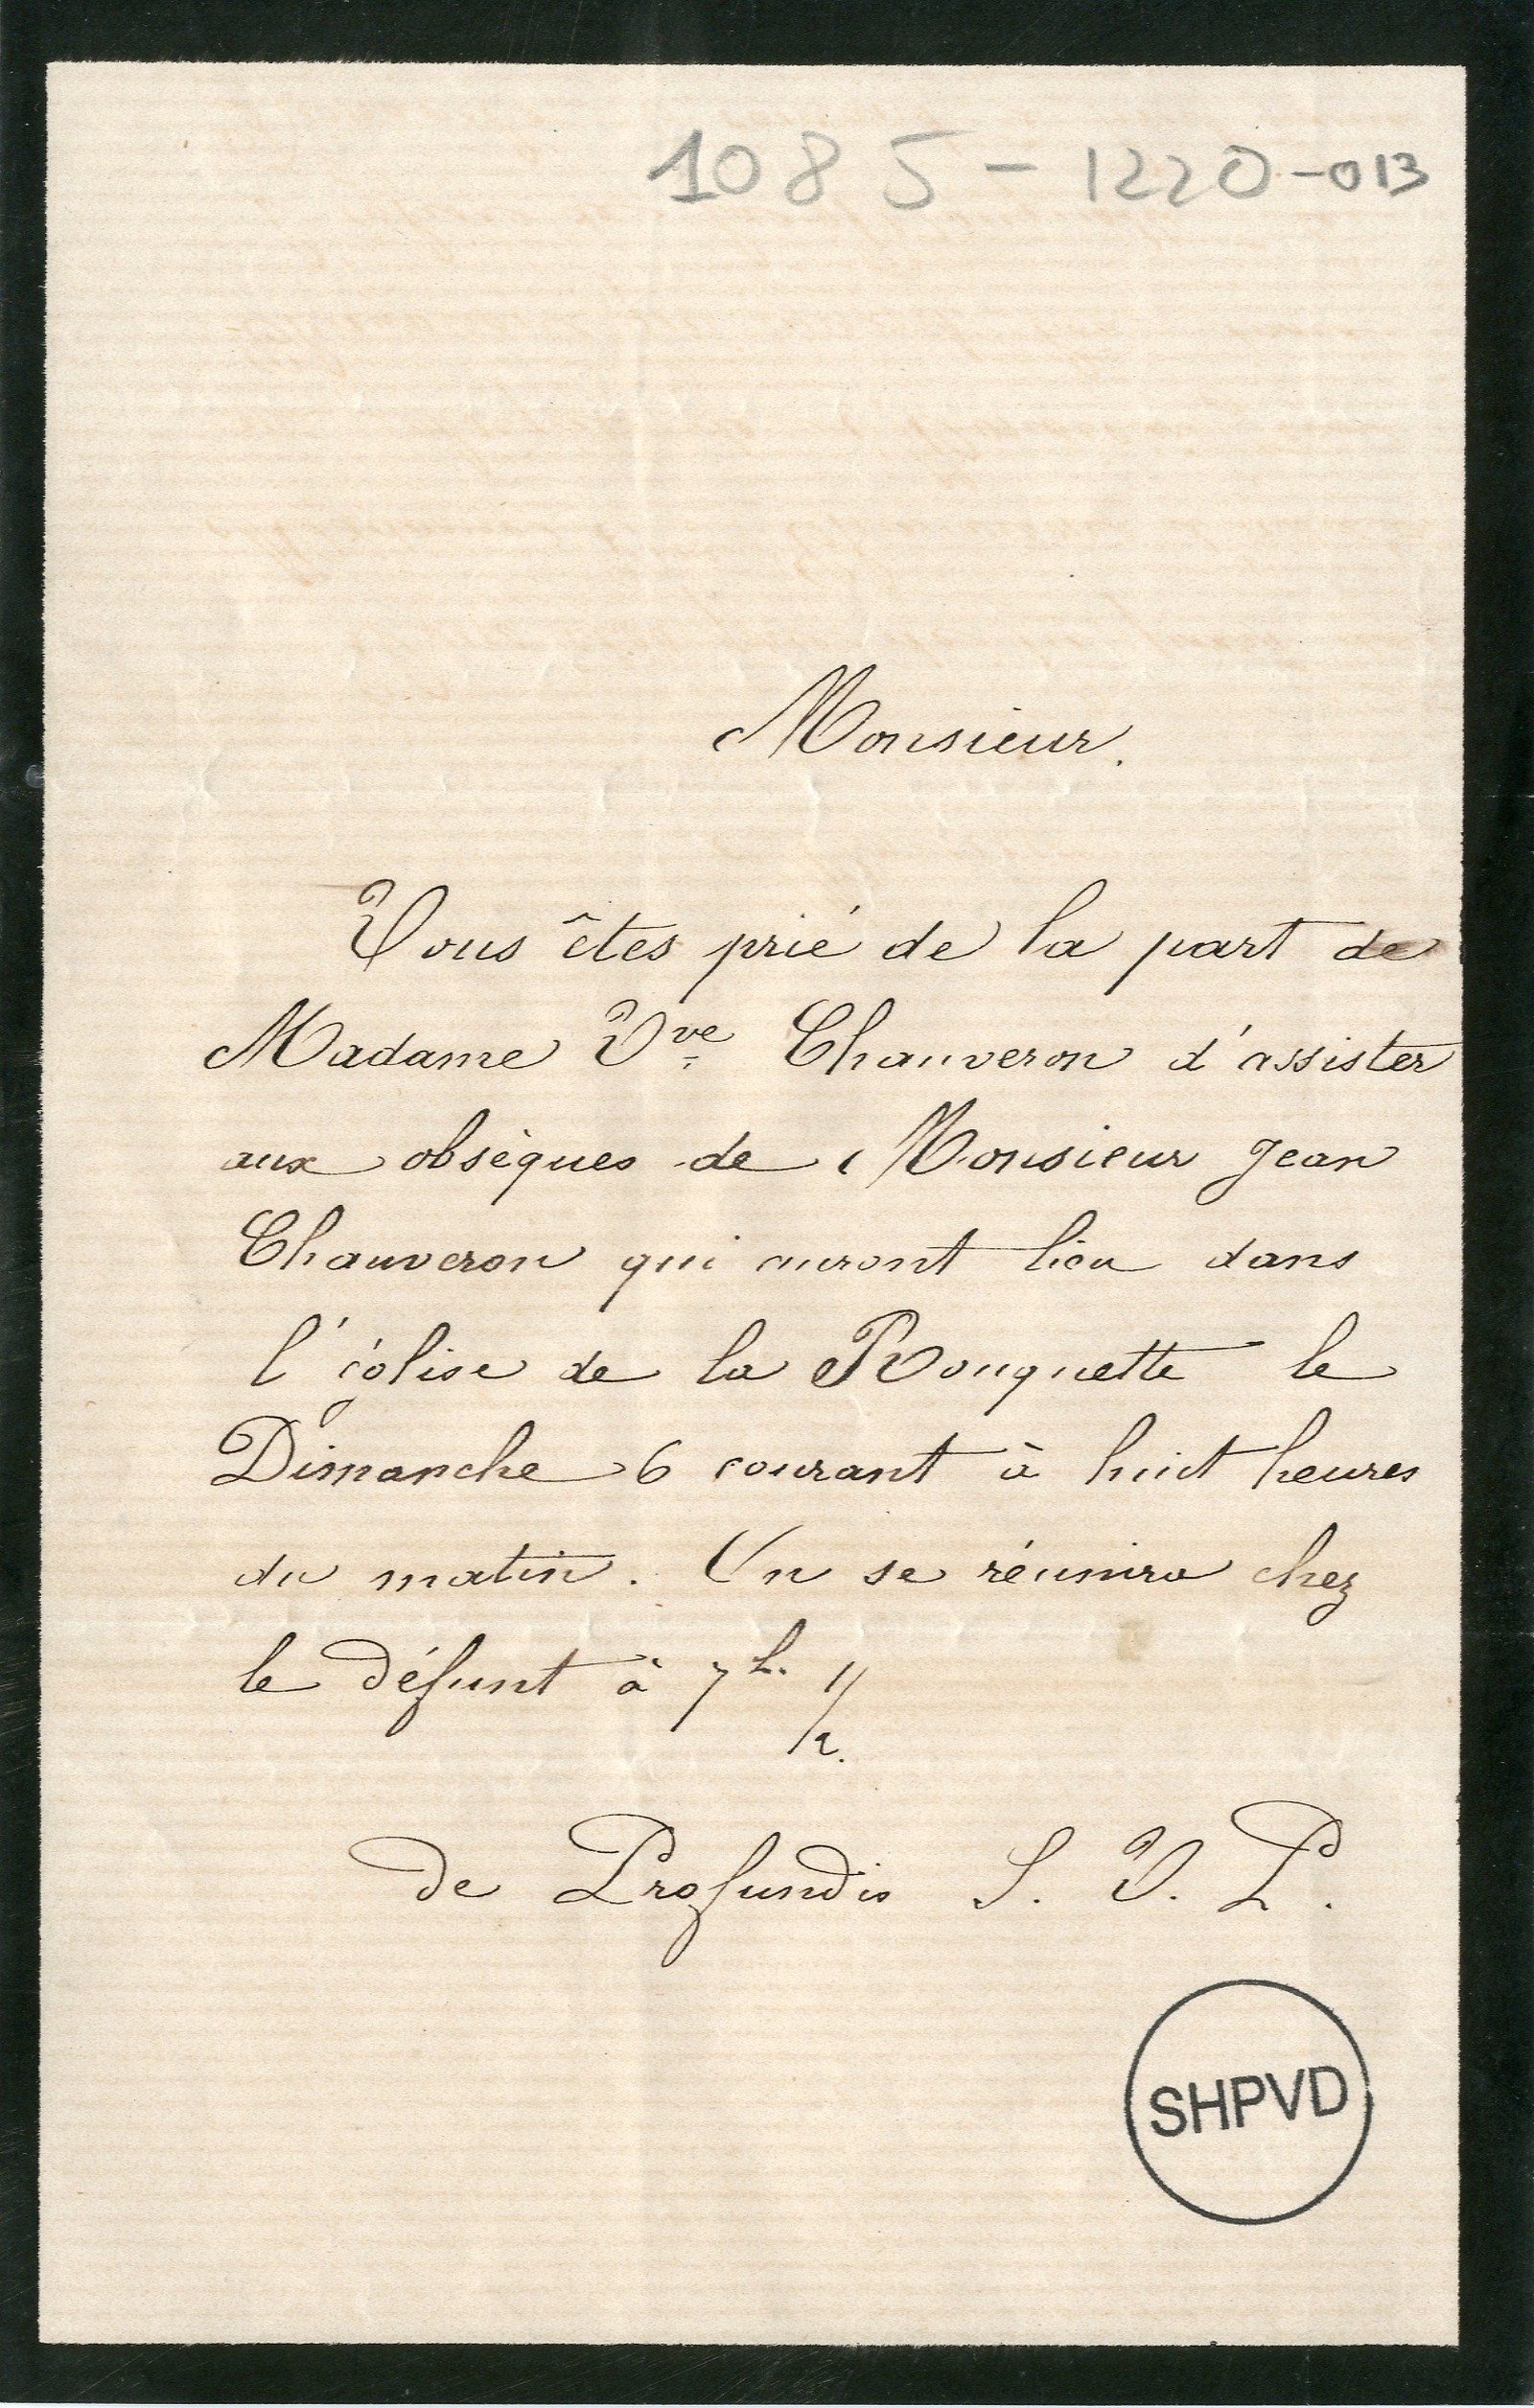 1085-1220-013
Monsieur.
Vous êtes prié de la part de
Madame Vve Chauveron d'assister
aux obsèques de Monsieur Jean
Chauveron qui auront lieu dans
l'église de la Rouquette le
Dimanche 6 courant à huit heures
du matin. On se réunira chez
le défunt à 7h. 1/2.
de Profundis S. V. P.
SHPVD